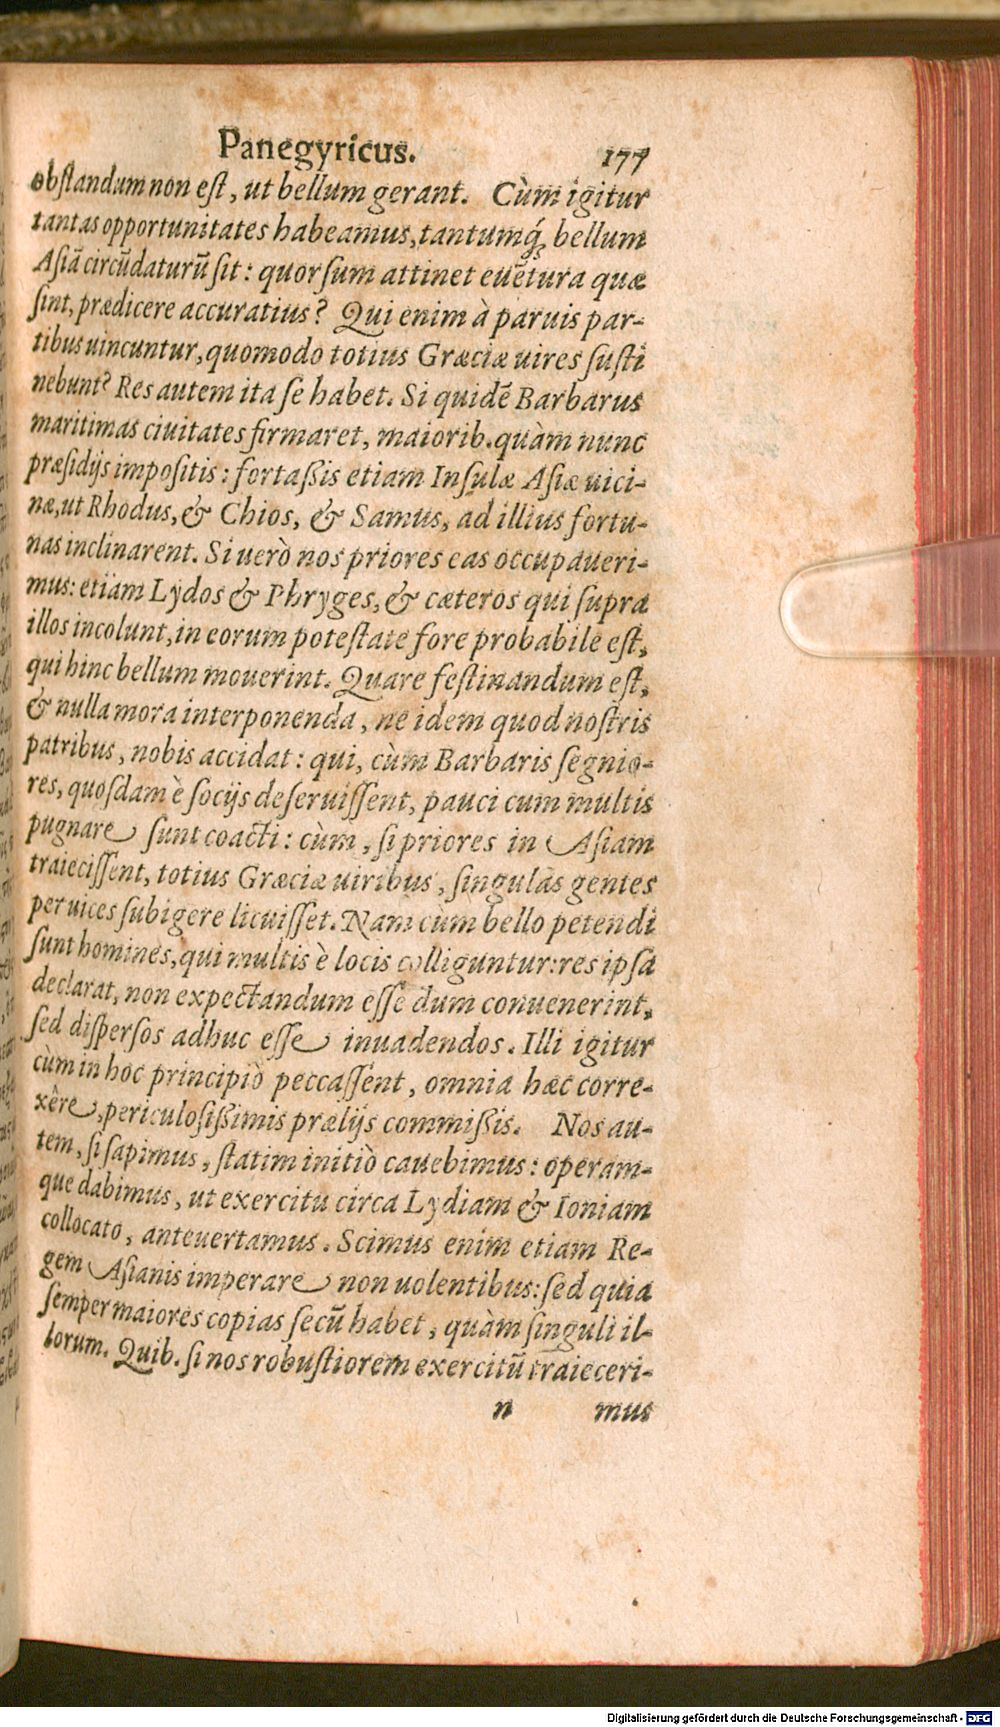 Panegyricus. 177
obſtandum non eſt, ut bellum gerant. Cùm igitur
tantas opportunitates habeamus, tantumq́; bellum
Aſiã circũdaturũ ſit: quorſum attinet euẽtura quæ
ſint, prædicere accuratius? Qui enim à paruis par-
tibus uincuntur, quomodo totius Græciæ uires ſuſti
nebunt? Res autem ita ſe habet. Si quidẽ Barbarus
maritimas ciuitates firmaret, maiorib. quàm nunc
præſidijs impoſitis: fortaßis etiam Inſulæ Aſiæ uici-
næ, ut Rhodus, & Chios, & Samus, ad illius fortu-
nas inclinarent. Si uerò nos priores eas occupaueri-
mus: etiam Lydos & Phryges, & cæteros qui ſupra
illos incolunt, in eorum poteſtate fore probabile eſt,
qui hinc bellum mouerint. Quare feſtinandum eſt,
& nulla mora interponenda, ne idem quod noſtris
patribus, nobis accidat: qui, cùm Barbaris ſegnio-
res, quoſdam è ſocijs deſeruiſſent, pauci cum multis
pugnare ſunt coacti: cùm, ſi priores in Aſiam
traieciſſent, totius Græciæ uiribus, ſingulas gentes
per uices ſubigere licuiſſet. Nam cùm bello petendi
ſunt homines, qui multis è locis colliguntur: res ipſa
declarat, non expectandum eſſe dum conuenerint,
ſed diſperſos adhuc eſſe inuadendos. Illi igitur
cùm in hoc principiò peccaſſent, omnia hæc corre-
xêre, periculoſißimis prælijs commißis. Nos au-
tem, ſi ſapimus, ſtatim initiò cauebimus: operam-
que dabimus, ut exercitu circa Lydiam & Ioniam
collocato, anteuertamus. Scimus enim etiam Re-
gem Aſianis imperare non uolentibus: ſed quia
ſemper maiores copias ſecũ habet, quàm ſinguli il-
lorum. Quib. ſi nos robuſtiorem exercitũ traieceri-
n mus
Digitalisierung gefördert durch die Deutsche Forschungsgemeinschaft - DFG